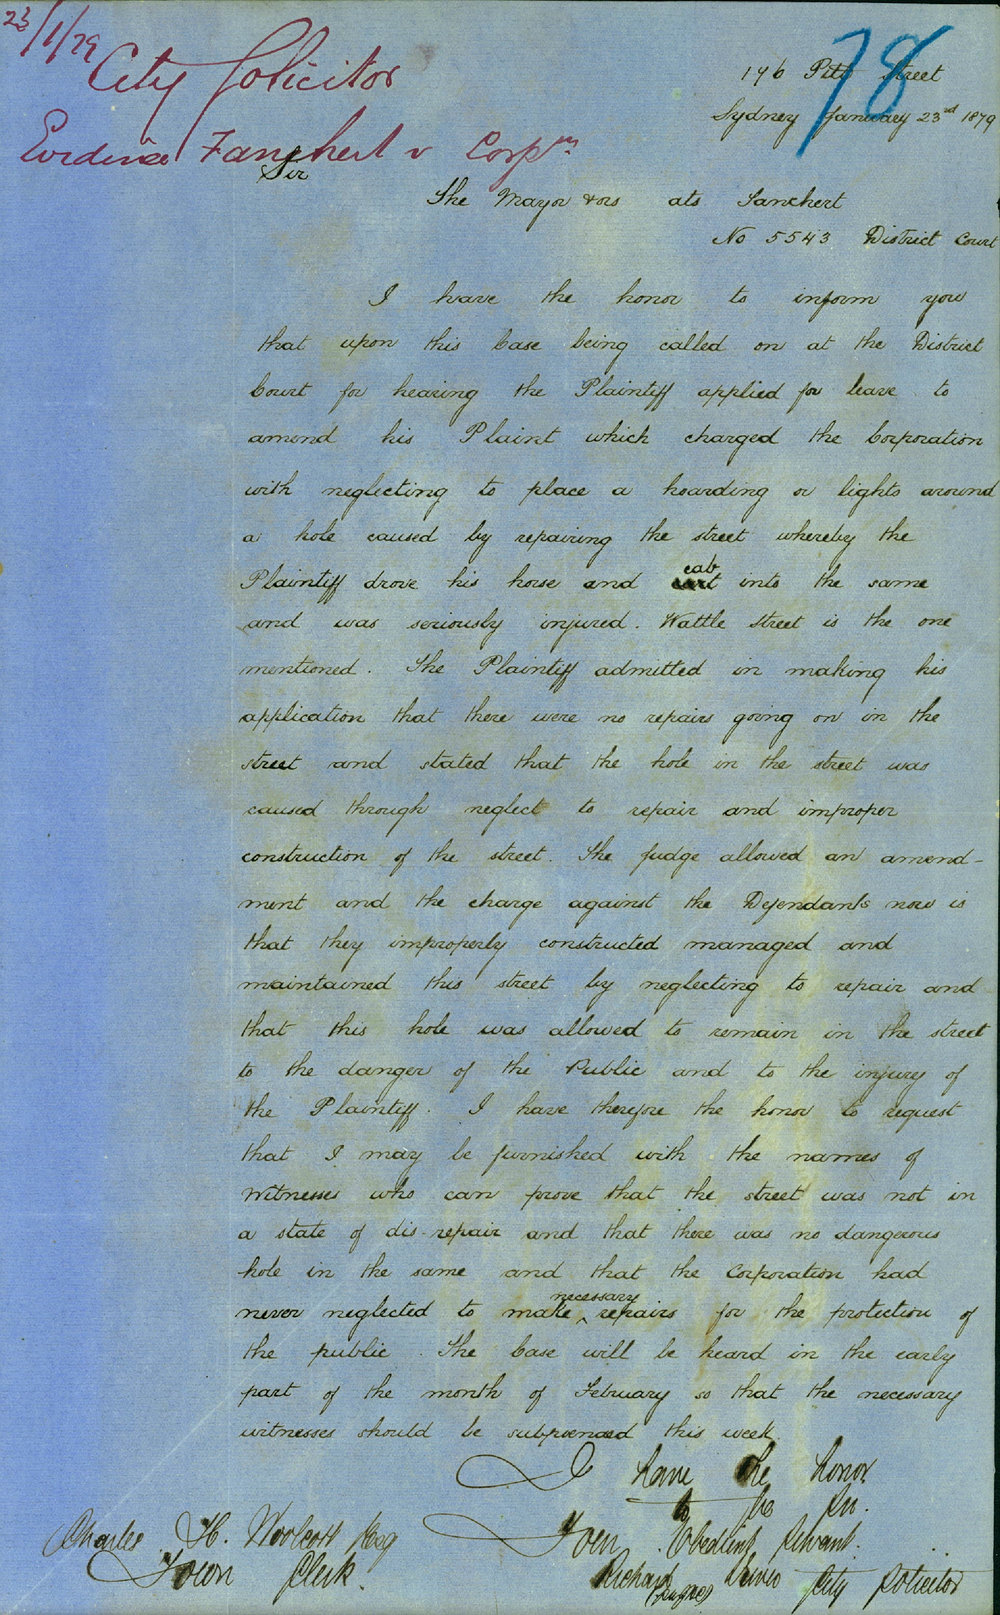 23/1/79
City Solicitor
Evidence Fanchert v Corptn
78
196 Pitt Street
Sydney January 23rd 1879
Sir
The Mayor & ors ats Fanchert
No 5543 District Court
I have the honor to inform you
that upon this Case being called on at the District
Court for hearing the Plaintiff applied for leave to
amend his Plaint which charged the Corporation
with neglecting to place a hoarding or lights around
a hole caused by repairing the street whereby the
Plaintiff drove his horse and cab into the same
and was seriously injured. Wattle Street is the one
mentioned. The Plaintiff admitted in making his
application that there were no repairs going on in the
street and stated that the hole in the street was
caused through neglect to repair and improper
construction of the street. The Judge allowed an amend-
ment and the charge against the Defendants now is
that they improperly constructed managed and
maintained this street by neglecting to repair and
that this hole was allowed to remain in the street
to the danger of the Public and to the injury of
the Plaintiff. I have therefore the honor to request
that I may be furnished with the names of
Witnesses who can prove that the street was not in
a state of dis-repair and that there was no dangerous
hole in the same and that the Corporation had
never neglected to make necessary repairs for the protection of
the public. The Case will be heard in the early
part of the month of February so that the necessary
witnesses should be subpoenaed this week.
I have the honor
to be Sir.
Your Obedient Servant.
Richard Driver City Solicitor
Charles H. Woolcott Esq
Town Clerk.